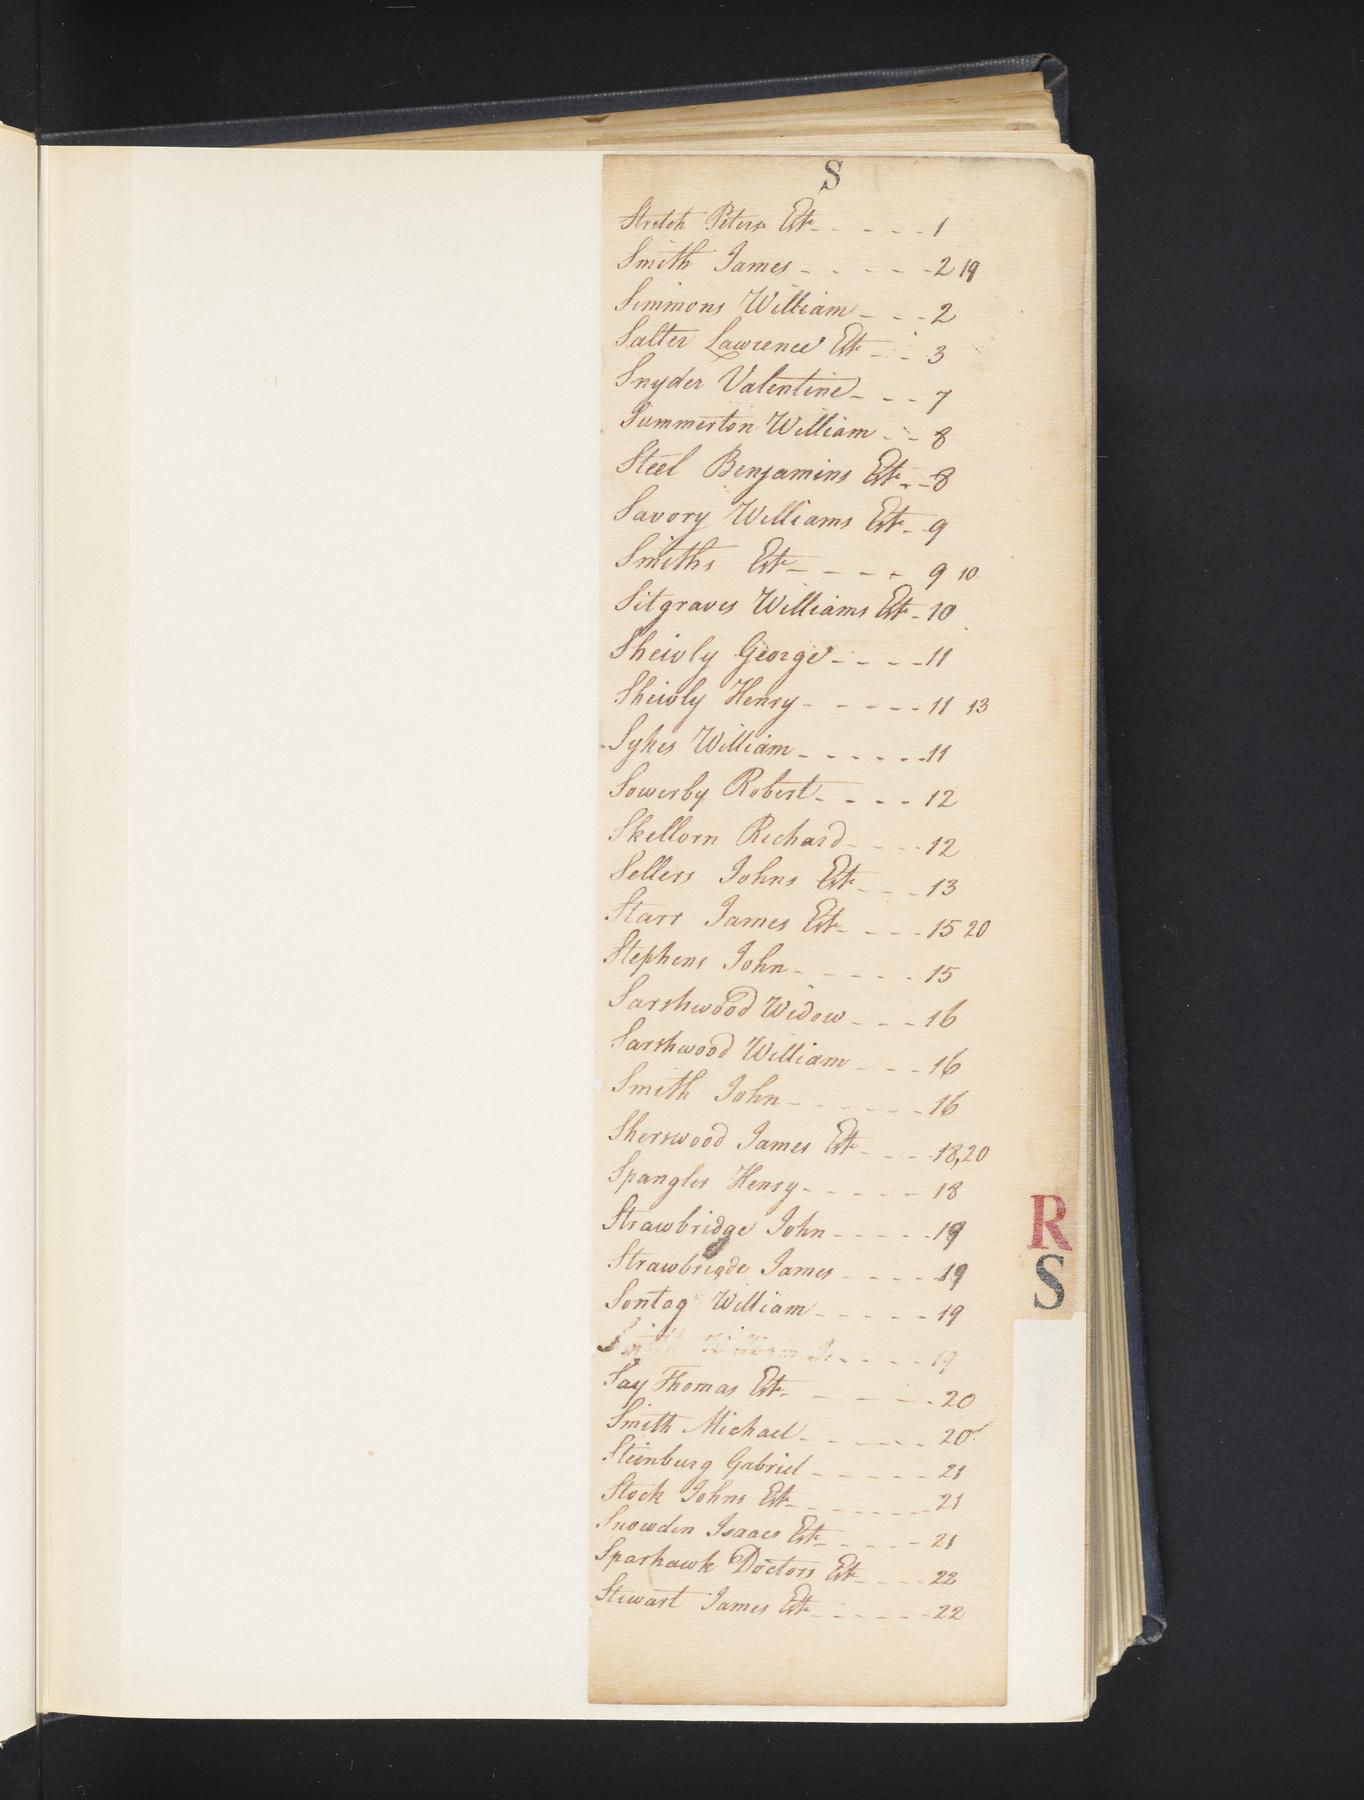 S
Stretch Peters Est - - - - - 1
Smith James - - - - - 2 19
Simmons William - - - 2
Salter Lawrence Est - - 3
Snyder Valentine - - - 7
Summerton William - - 8
Steel Benjamins Est - - 8
Savory Williams Est - 9
Smiths Est - - - - 9 10
Sitgraves Williams Est - 10
Sheivly George - - - - 11
Sheivly Henry - - - - - 11 13
Sykes William - - - - - - 11
Sowerby Robert - - - - 12
Skellorn Richard - - - - 12
Sellers Johns Est - - - 13
Starr James Est - - - - 15 20
Stephens John - - - - - 15
Sarshwood Widow - - - 16
Sarshwood William - - - 16
Smith John - - - - - 16
Sherswood James Est - - - 18,20
Spangler Henry - - - - - 18
Strawbridge John - - - - - 19
Strawbrigde James - - - - 19
Sontag William - - - - - 19
Smith William - - - - 19
Say Thomas Est - - - - 20
Smith Michael - - - - - 20
Steinburg Gabriel - - - - - 21
Stock Johns Est - - - - - 21
Snowden Isaacs Est - - - - - 21
Sparhawk Doctors Est - - - - 22
Stewart James Est - - - - - - 22
R
S